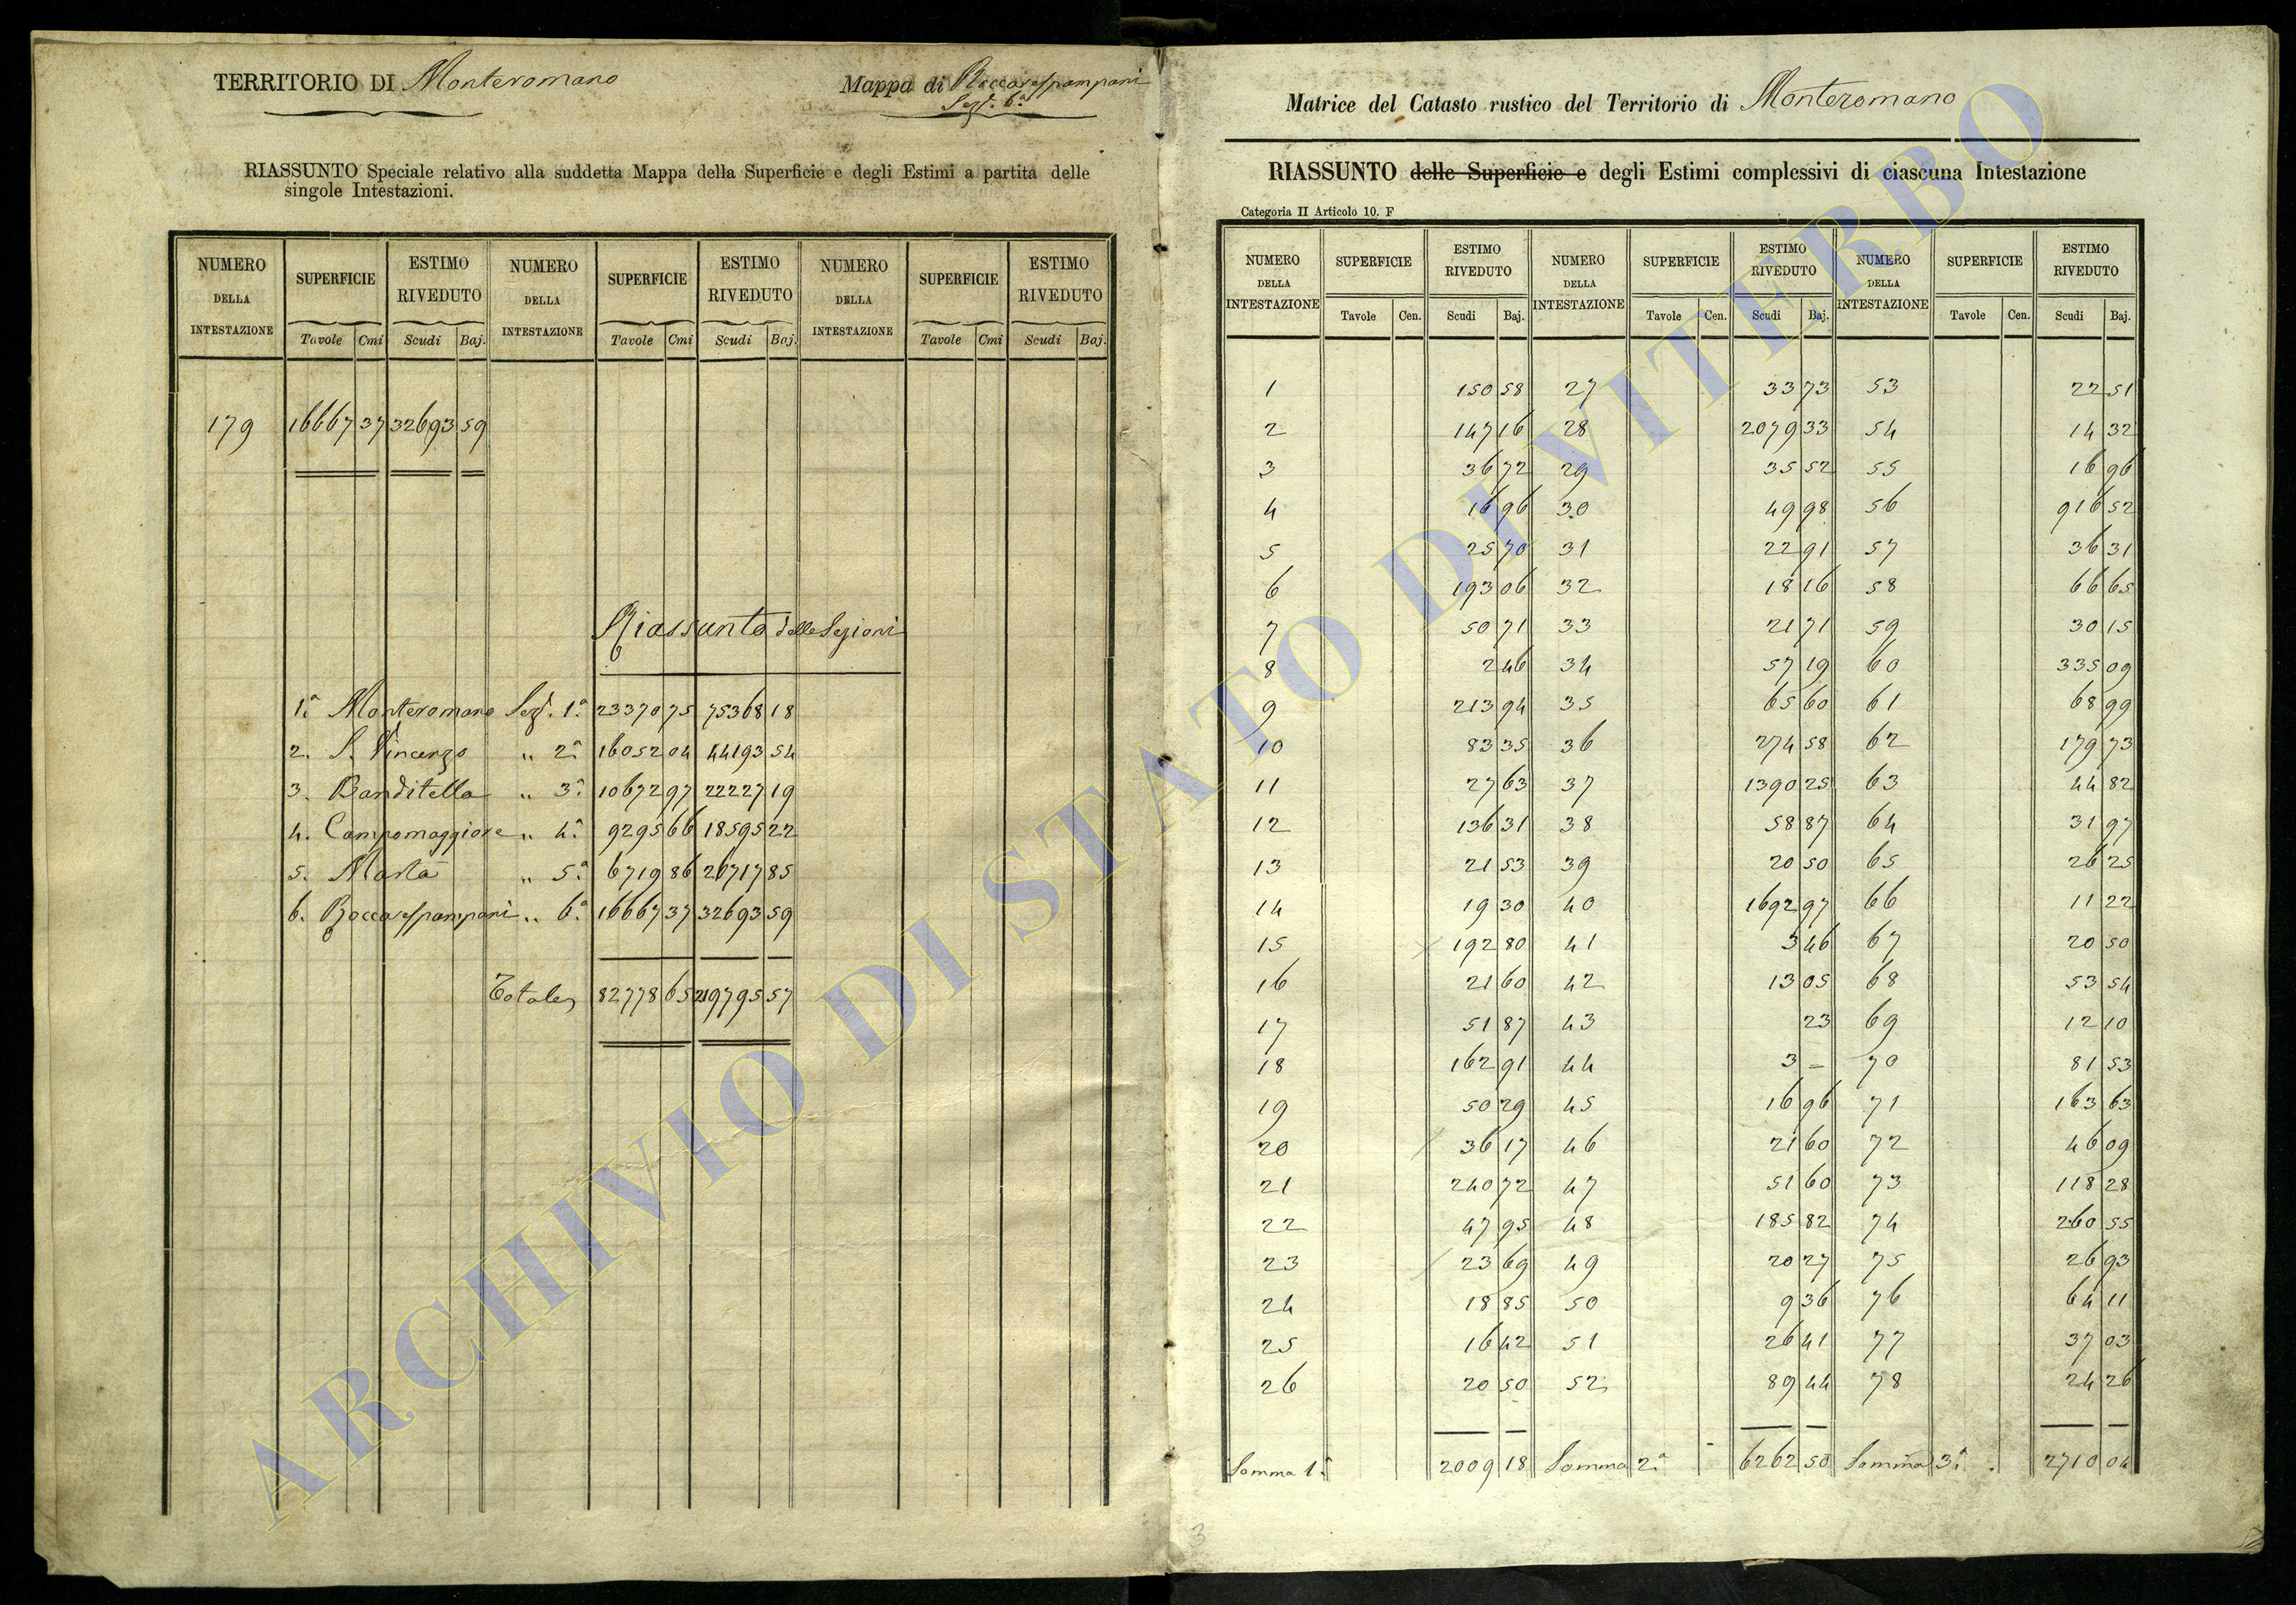 TERRITORIO DI Monteromano
Mappa di Roccarespampani
Sezᵉ. 6ª
RIASSUNTO Speciale relativo alla suddetta Mappa della Superficie e degli Estimi a partita delle
singole Intestazioni.
NUMERO DELLA INTESTAZIONE SUPERFICIE ESTIMO RIVEDUTO NUMERO DELLA INTESTAZIONE SUPERFICIE ESTIMO RIVEDUTO NUMERO DELLA INTESTAZIONE SUPERFICIE ESTIMO RIVEDUTO
Tavole Cmi Scudi Baj. Tavole Cmi Scudi Baj. Tavole Cmi Scudi Baj.
179 16667 37 32693 59
Riassunto delle Sezioni
1ª Monteromano Sezᵉ. 1ª 23370 75 75368 18
2. S. Vincenzo " 2ª 16052 04 44193 54
3. Banditella " 3ª 10672 97 22227 19
4. Campomaggiore " 4ª 9295 66 18595 22
5. Marta " 5ª 6719 86 26717 85
6. Roccarespampani " 6ª 16667 37 32693 59
Totale 82778 65 219795 57
Matrice del Catasto rustico del Territorio di Monteromano
RIASSUNTO delle Superficie e degli Estimi complessivi di ciascuna Intestazione
Categoria II Articolo 10. F
NUMERO DELLA INTESTAZIONE SUPERFICIE ESTIMO RIVEDUTO NUMERO DELLA INTESTAZIONE SUPERFICIE ESTIMO RIVEDUTO NUMERO DELLA INTESTAZIONE SUPERFICIE ESTIMO RIVEDUTO
Tavole Cen. Scudi Baj. Tavole Cen. Scudi Baj. Tavole Cen. Scudi Baj.
1 150 58 27 33 73 53 22 51
2 147 16 28 2079 33 54 14 32
3 36 72 29 35 52 55 16 96
4 16 96 30 49 98 56 916 52
5 25 70 31 22 91 57 36 31
6 193 06 32 18 16 58 66 65
7 50 71 33 21 71 59 30 15
8 2 46 34 57 19 60 335 09
9 213 94 35 65 60 61 68 99
10 83 35 36 274 58 62 179 73
11 27 63 37 1390 25 63 44 82
12 136 31 38 58 87 64 31 97
13 21 53 39 20 50 65 26 25
14 19 30 40 1692 97 66 11 22
15 192 80 41 3 46 67 20 50
16 21 60 42 13 05 68 53 54
17 51 87 43 23 69 12 10
18 162 91 44 3 – 70 81 53
19 50 29 45 16 96 71 163 63
20 36 17 46 21 60 72 46 09
21 240 72 47 51 60 73 118 28
22 47 95 48 185 82 74 260 55
23 23 69 49 20 27 75 26 93
24 18 85 50 9 36 76 64 11
25 16 42 51 26 41 77 37 03
26 20 50 52 89 44 78 24 26
Somma 1ª 2009 18 Somma 2ª 6262 50 Somma 3ª 2710 04
3
ARCHIVIO DI STATO DI VITERBO